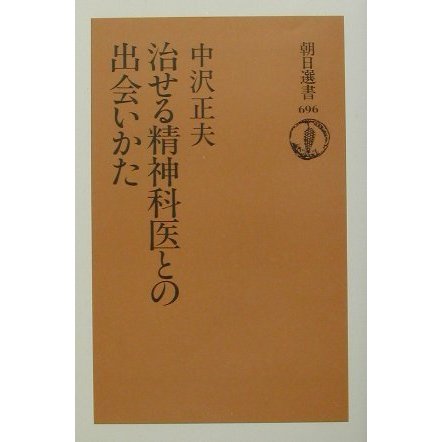 朝日選書
696
中沢正夫
治せる精神科医との
出会いかた